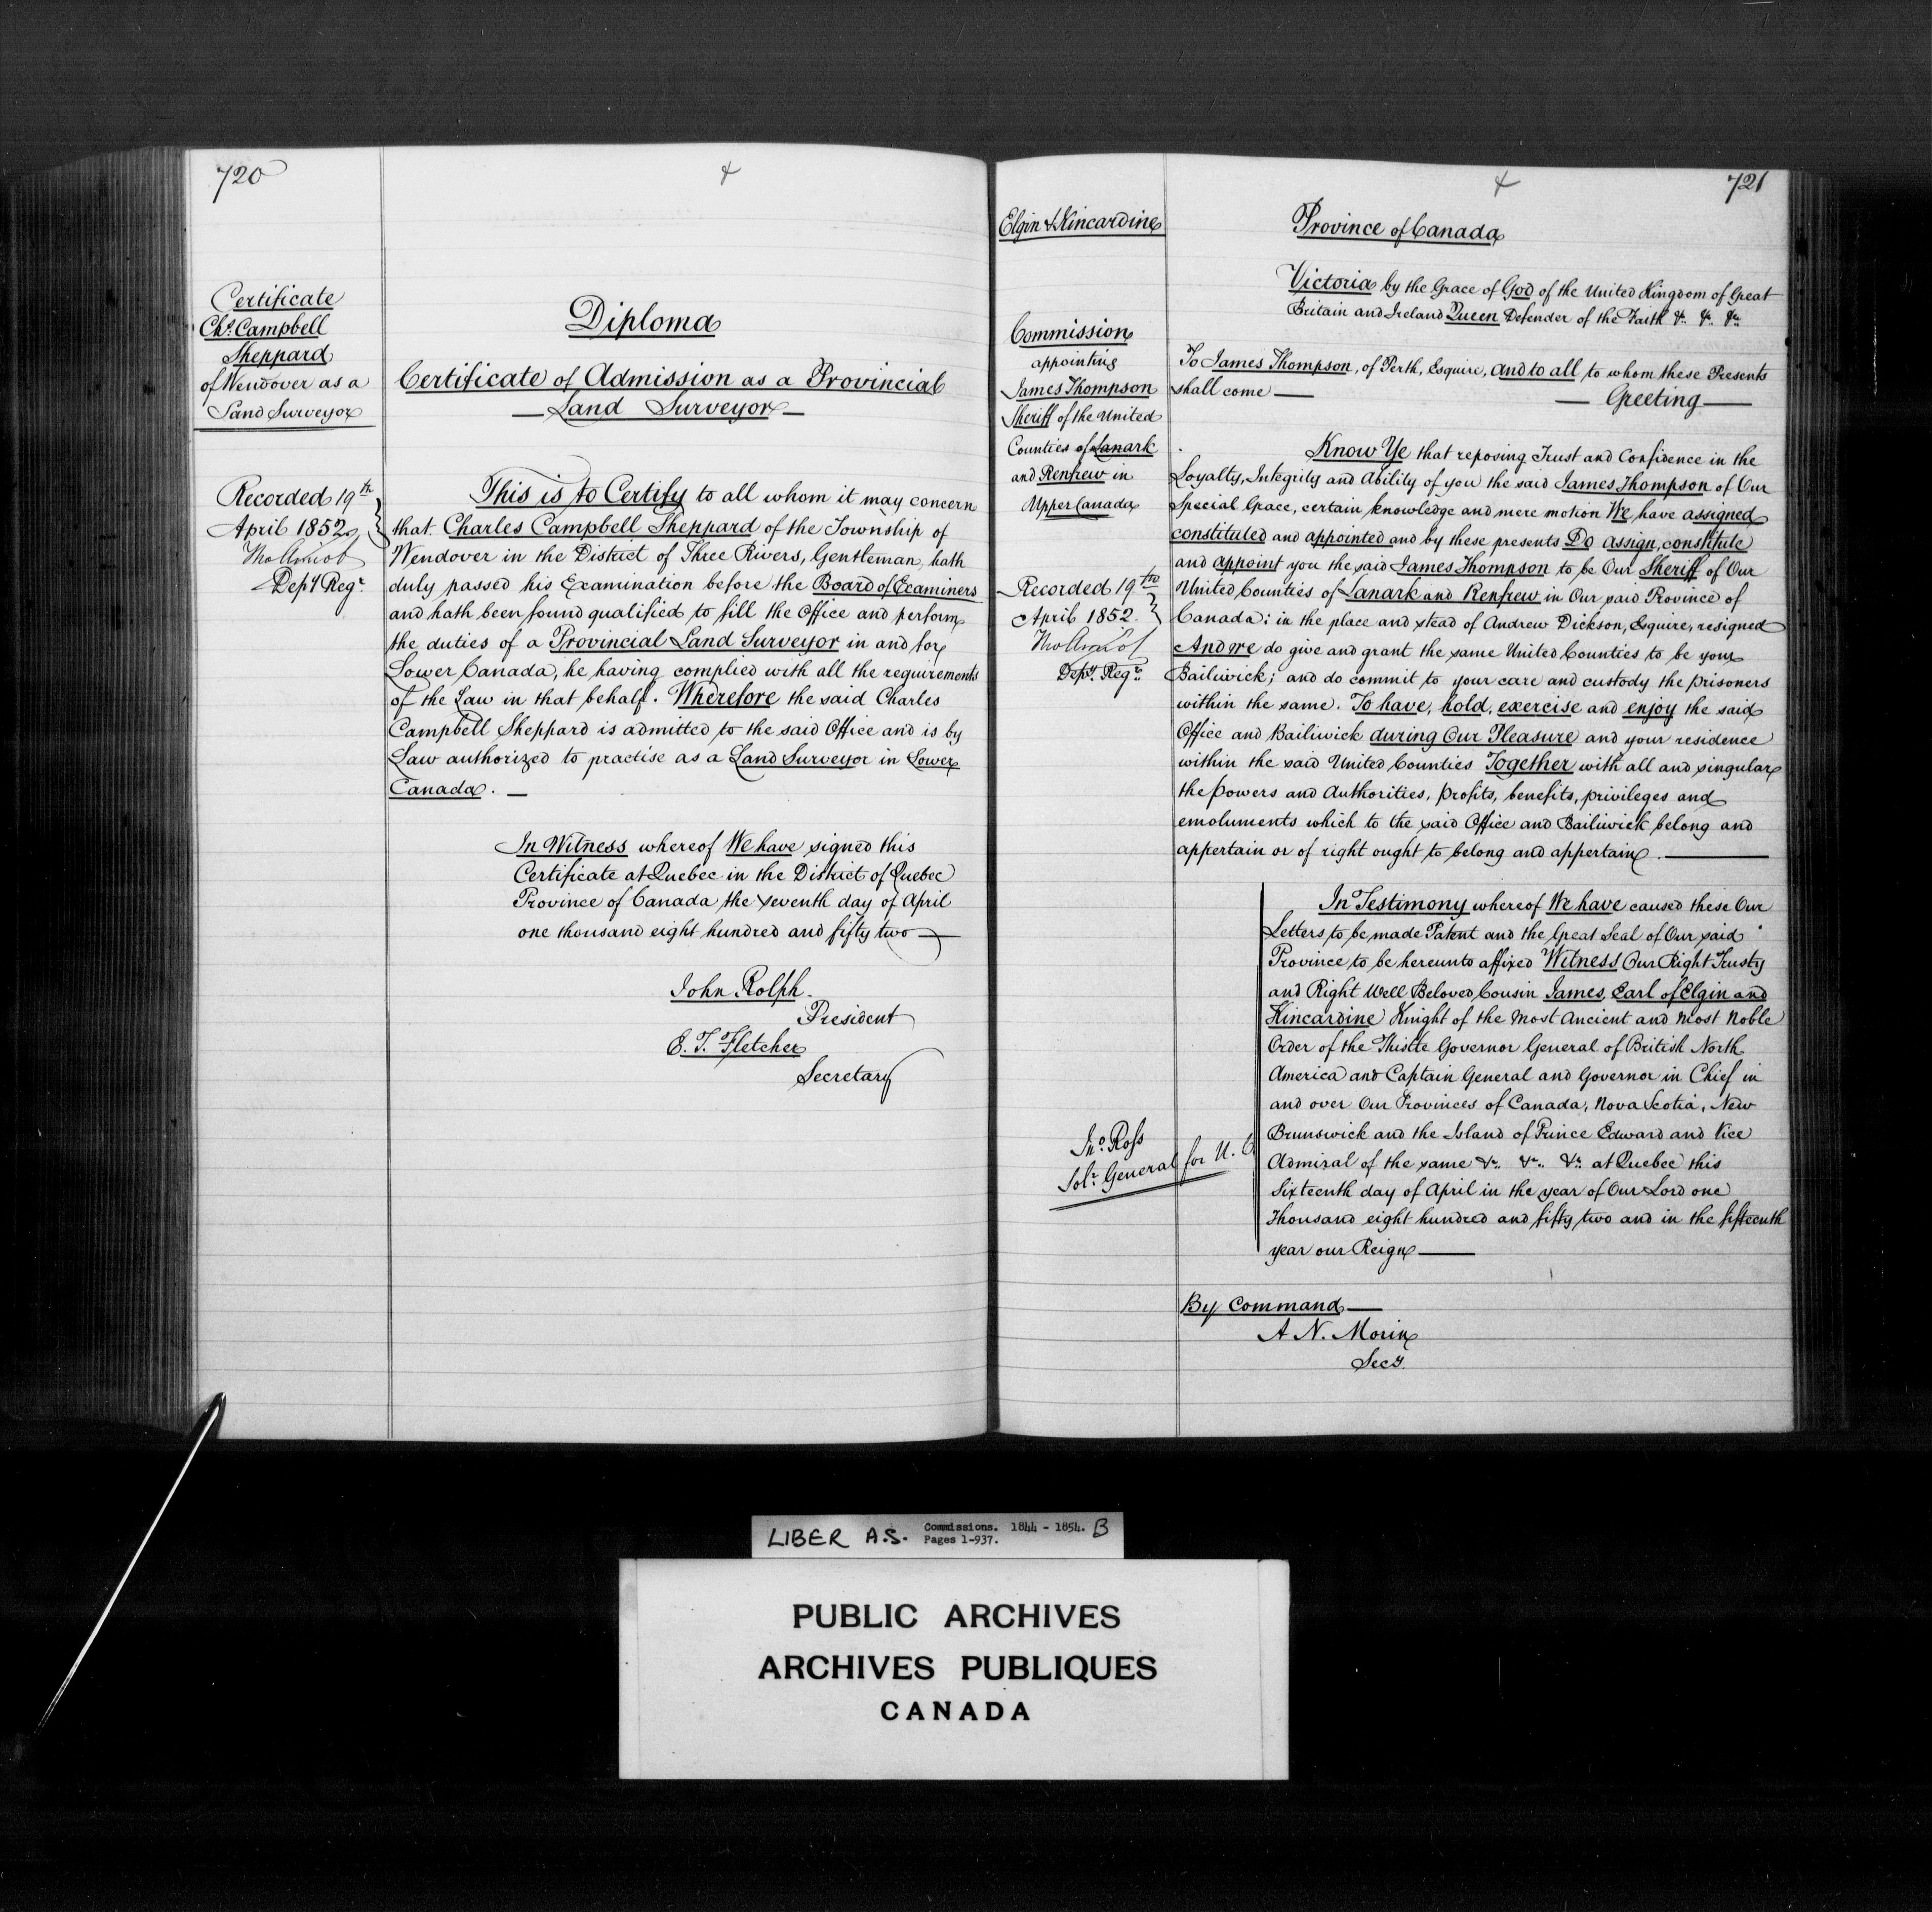 720
Certificate
Chs. Campbell
Sheppard
of Wendover as a
Land Surveyor
Recorded 19th
April 1852
Tho Amiot
Depy Regr.
Diploma
Certificate of Admission as a Provincial
— Land Surveyor —
This is to Certify to all whom it may concern
that Charles Campbell Sheppard of the Township of
Wendover in the District of Three Rivers, Gentleman, hath
duly passed his Examination before the Board of Examiners
and hath been found qualified to fill the Office and perform
the duties of a Provincial Land Surveyor in and for
Lower Canada, he having complied with all the requirements
of the Law in that behalf. Wherefore the said Charles
Campbell Sheppard is admitted to the said Office and is by
Law authorized to practise as a Land Surveyor in Lower
Canada. —
In Witness whereof We have signed this
Certificate at Quebec in the District of Quebec
Province of Canada the seventh day of April
one thousand eight hundred and fifty two —
John Rolph.
President
E. T. Fletcher
Secretary
721
Elgin & Kincardine
Commission
appointing
James Thompson
Sheriff of the United
Counties of Lanark
and Renfrew in
Upper Canada
Recorded 19th
April 1852.
Tho Amiot
Depy. Regr.
Jno. Ross
Solr. General for U. C.
Province of Canada
Victoria by the Grace of God of the United Kingdom of Great
Britain and Ireland Queen Defender of the Faith &c. &c. &c.
To James Thompson, of Perth, Esquire, and to all to whom these Presents
shall come —
— Greeting —
Know Ye that reposing Trust and Confidence in the
Loyalty, Integrity and Ability of you the said James Thompson of Our
Special Grace, certain knowledge and mere motion We have assigned
constituted and appointed and by these presents Do assign, constitute
and appoint you the said James Thompson to be Our Sheriff of Our
United Counties of Lanark and Renfrew in Our said Province of
Canada; in the place and stead of Andrew Dickson, Esquire, resigned
And we do give and grant the same United Counties to be your
Bailiwick; and do commit to your care and custody the prisoners
within the same. To have, hold, exercise and enjoy the said
Office and Bailiwick during Our Pleasure and your residence
within the said United Counties Together with all and singular
the powers and Authorities, profits, benefits, privileges and
emoluments which to the said Office and Bailiwick belong and
appertain or of right ought to belong and appertain. —
In Testimony whereof We have caused these Our
Letters to be made Patent and the Great Seal of Our said
Province to be hereunto affixed Witness Our Right Trusty
and Right Well Beloved Cousin James, Earl of Elgin and
Kincardine Knight of the Most Ancient and Most Noble
Order of the Thistle Governor General of British North
America and Captain General and Governor in Chief in
and over Our Provinces of Canada, Nova Scotia, New
Brunswick and the Island of Prince Edward and Vice
Admiral of the same &c. &c. &c. at Quebec this
Sixteenth day of April in the year of Our Lord one
Thousand eight hundred and fifty two and in the fifteenth
year our Reign —
By Command —
A N. Morin
Secy.
LIBER A.S. Commissions. 1844 - 1854. B
Pages 1-937.
PUBLIC ARCHIVES
ARCHIVES PUBLIQUES
CANADA